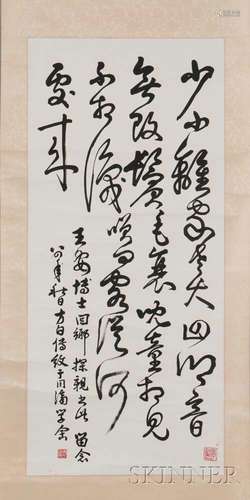 少小離家老大回鄉音
無改鬢毛衰兒童相見
不相識笑問客從何
處來
王安博士回鄉探親書此留念
年秋日方白傳紋于同濟學舍
SKINNER